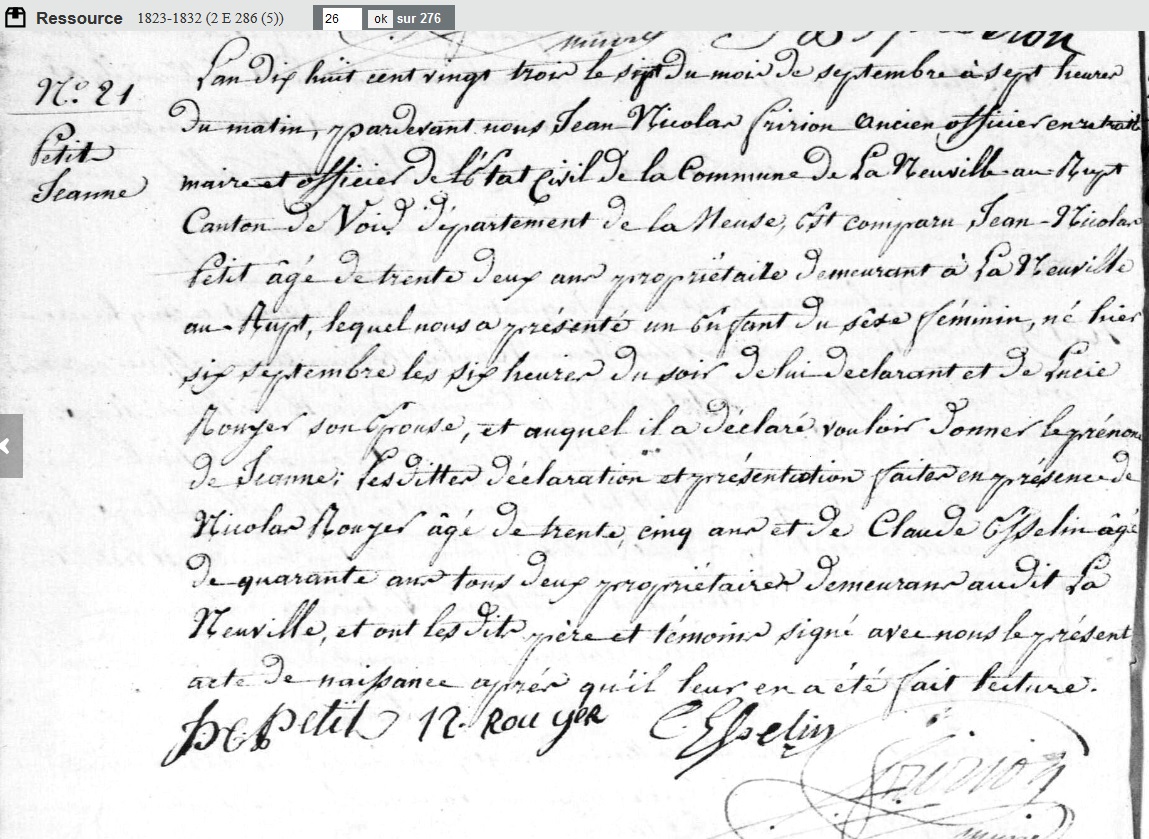 Ressource 1823-1832 (2 E 286 (5)) 26 ok sur 276
maire
N.o 21
Petit
Jeanne
L'an dix huit cent vingt trois le sept du mois de septembre à sept heures
du matin, pardevant nous Jean Nicolas Fririon ancien officier en retraite
maire et officier de l'État Civil de la Commune de La Neuville au Rupt
Canton de Void département de la Meuse, Est comparu Jean-Nicolas
Petit âgé de trente deux ans propriétaire demeurant à La Neuville
au-Rupt, lequel nous a présenté un Enfant du sexe féminin, né hier
six septembre les six heures du soir de lui déclarant et de Lucie
Rouyer son Epouse, et auquel il a déclaré vouloir donner le prénom
de Jeanne; Lesdittes déclaration et présentation faites en présence de
Nicolas Rouyer âgé de trente cinq ans et de Claude Esselin âgé
de quarante ans tous deux propriétaires demeurans audit La
Neuville, et ont lesdits père et témoins signé avec nous le présent
acte de naissance après qu'il leur en a été fait lecture.
Petit N. Rouyer C Esselin
Fririon
maire